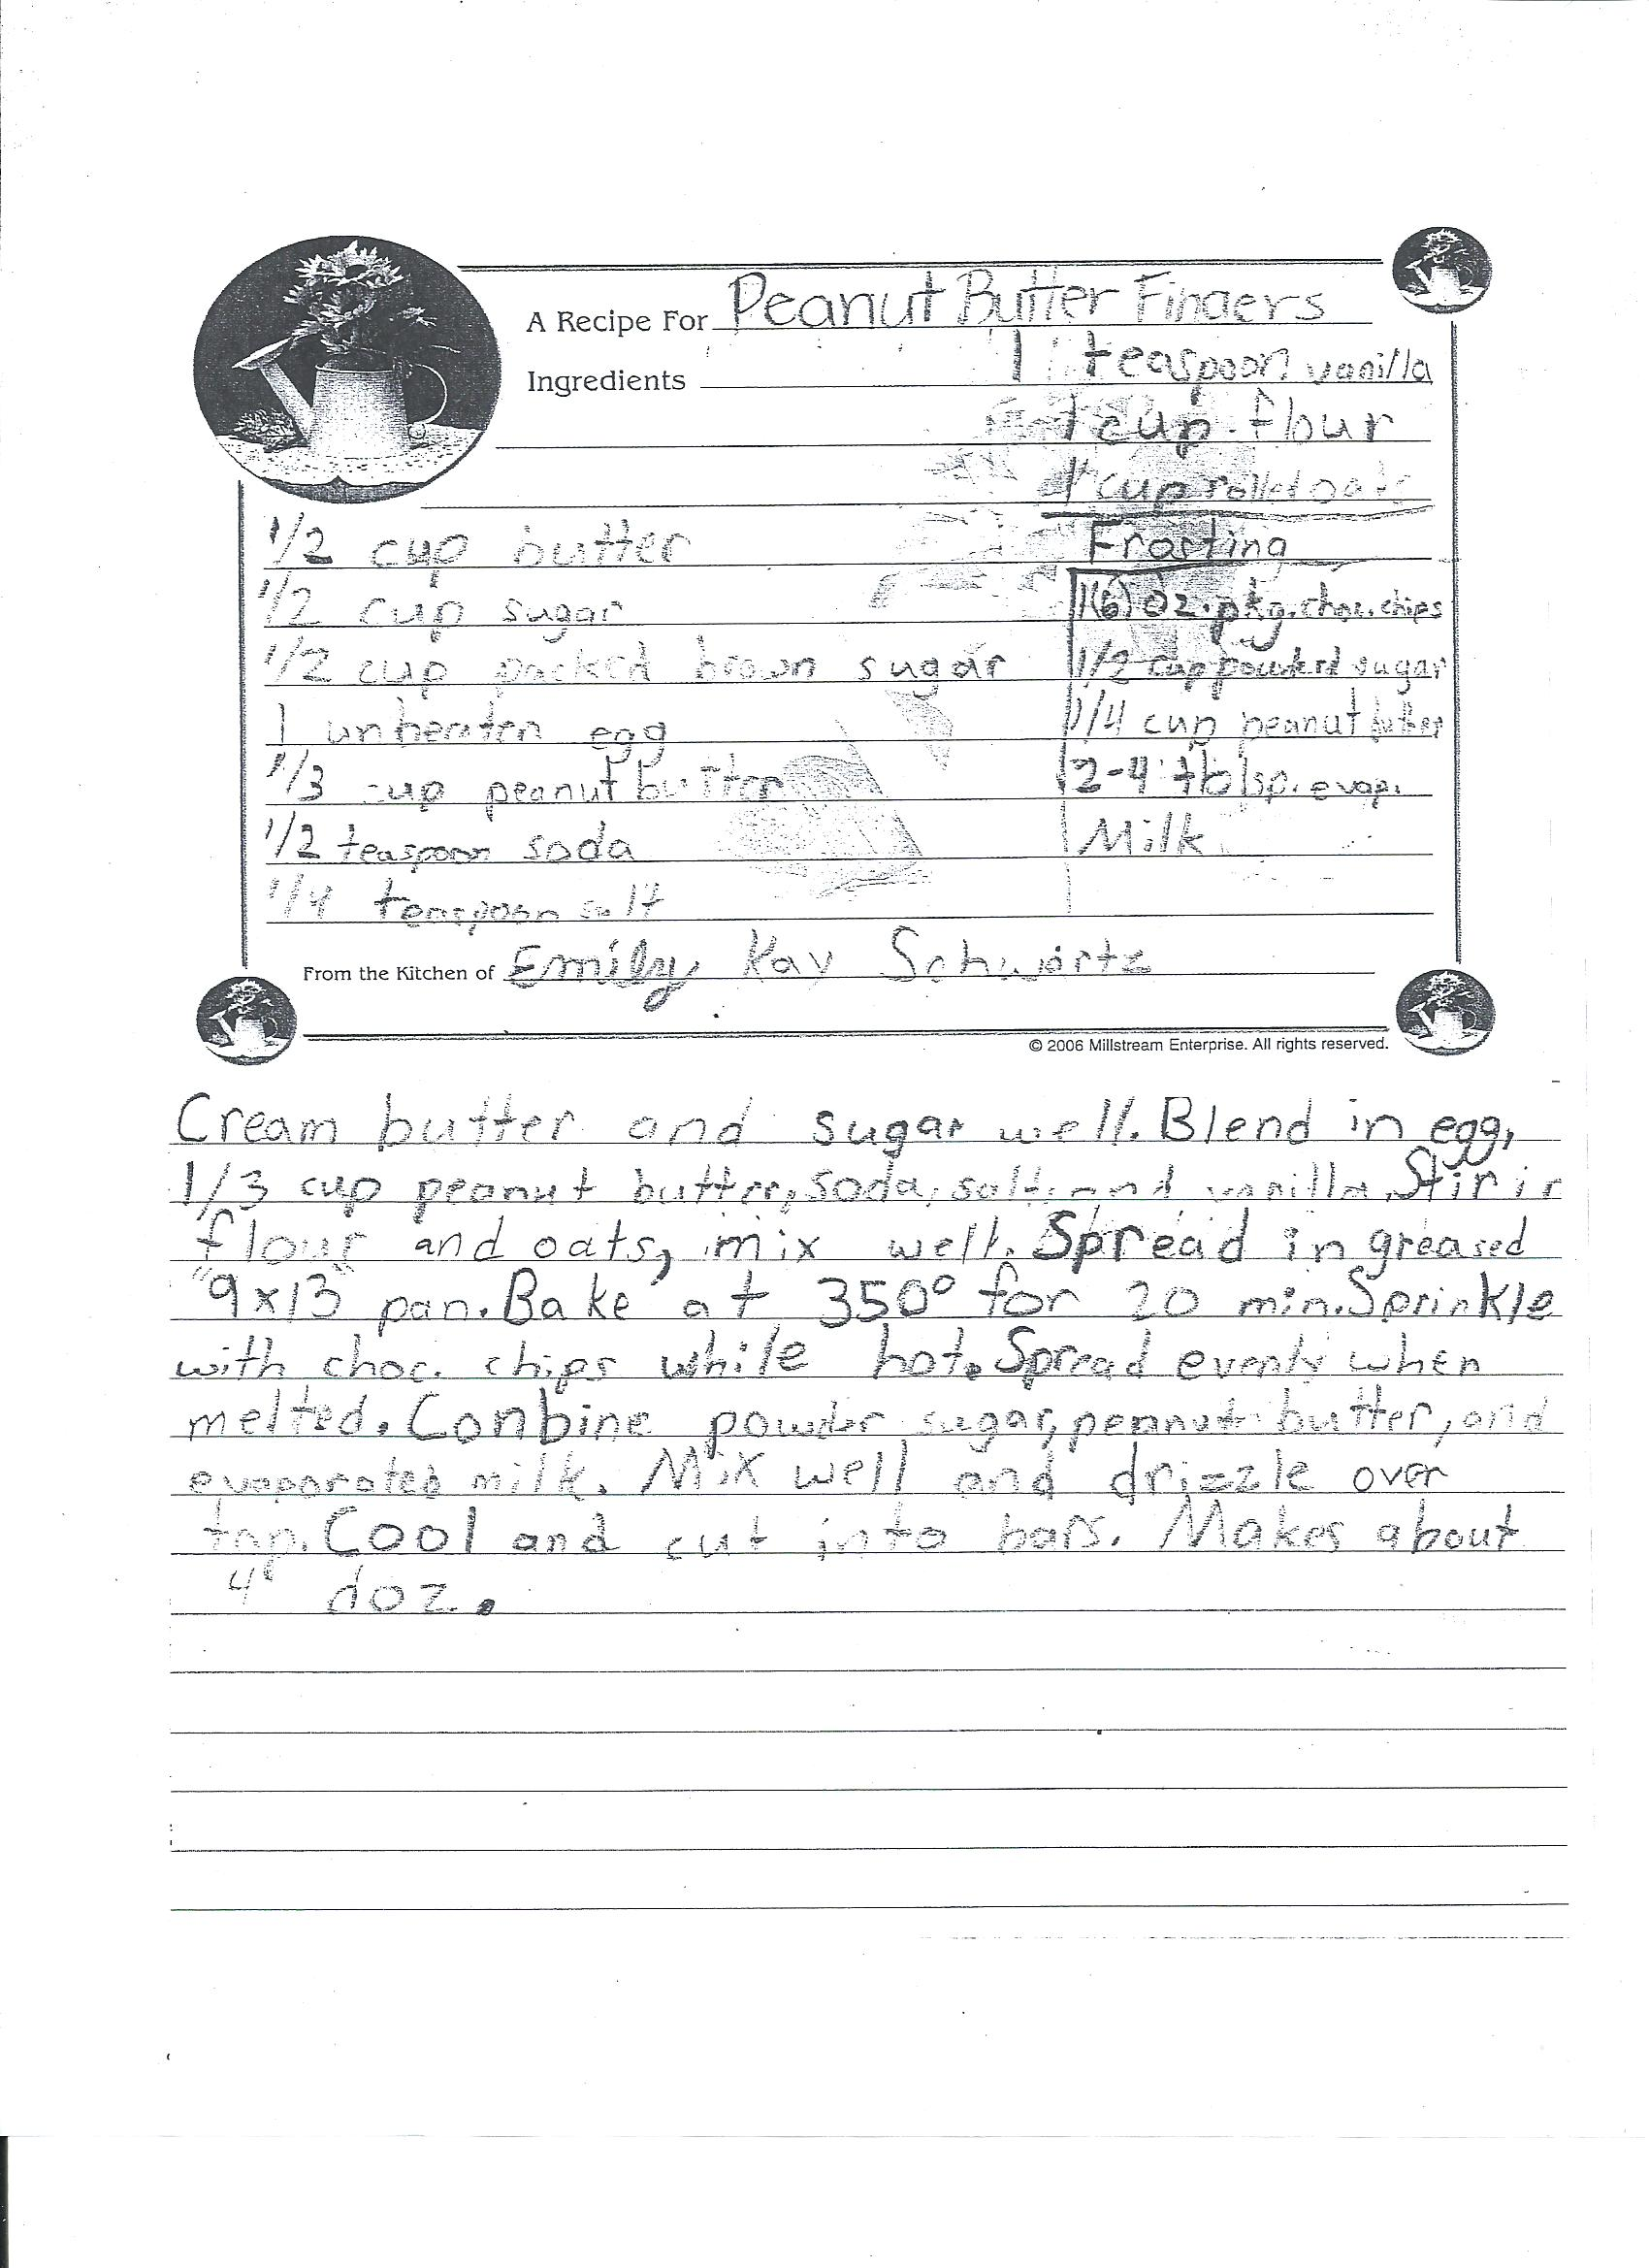 A Recipe For Peanut Butter Fingers
Ingredients
1 teaspoon vanilla
1 cup flour
1 cup rolled oats
1/2 cup butter
1/2 cup sugar
1/2 cup packed brown sugar
1 unbeaten egg
1/3 cup peanut butter
1/2 teaspoon soda
1/4 teaspoon salt
Frosting
1(6) oz. pkg. choc. chips
1/2 cup powderd sugar
1/4 cup peanut butter
2-4 tblsp. evap.
Milk
From the Kitchen of Emily Kay Schwartz
© 2006 Millstream Enterprise. All rights reserved.
Cream butter and sugar well. Blend in egg,
1/3 cup peanut butter, soda, salt, and vanilla. Stir in
flour and oats, mix well. Spread in greased
"9x13" pan. Bake at 350° for 20 min. Sprinkle
with choc. chips while hot. Spread evenly when
melted. Conbine powder sugar, peanut butter, and
evaporated milk. Mix well and drizzle over
top. Cool and cut into bars. Makes about
4 doz.